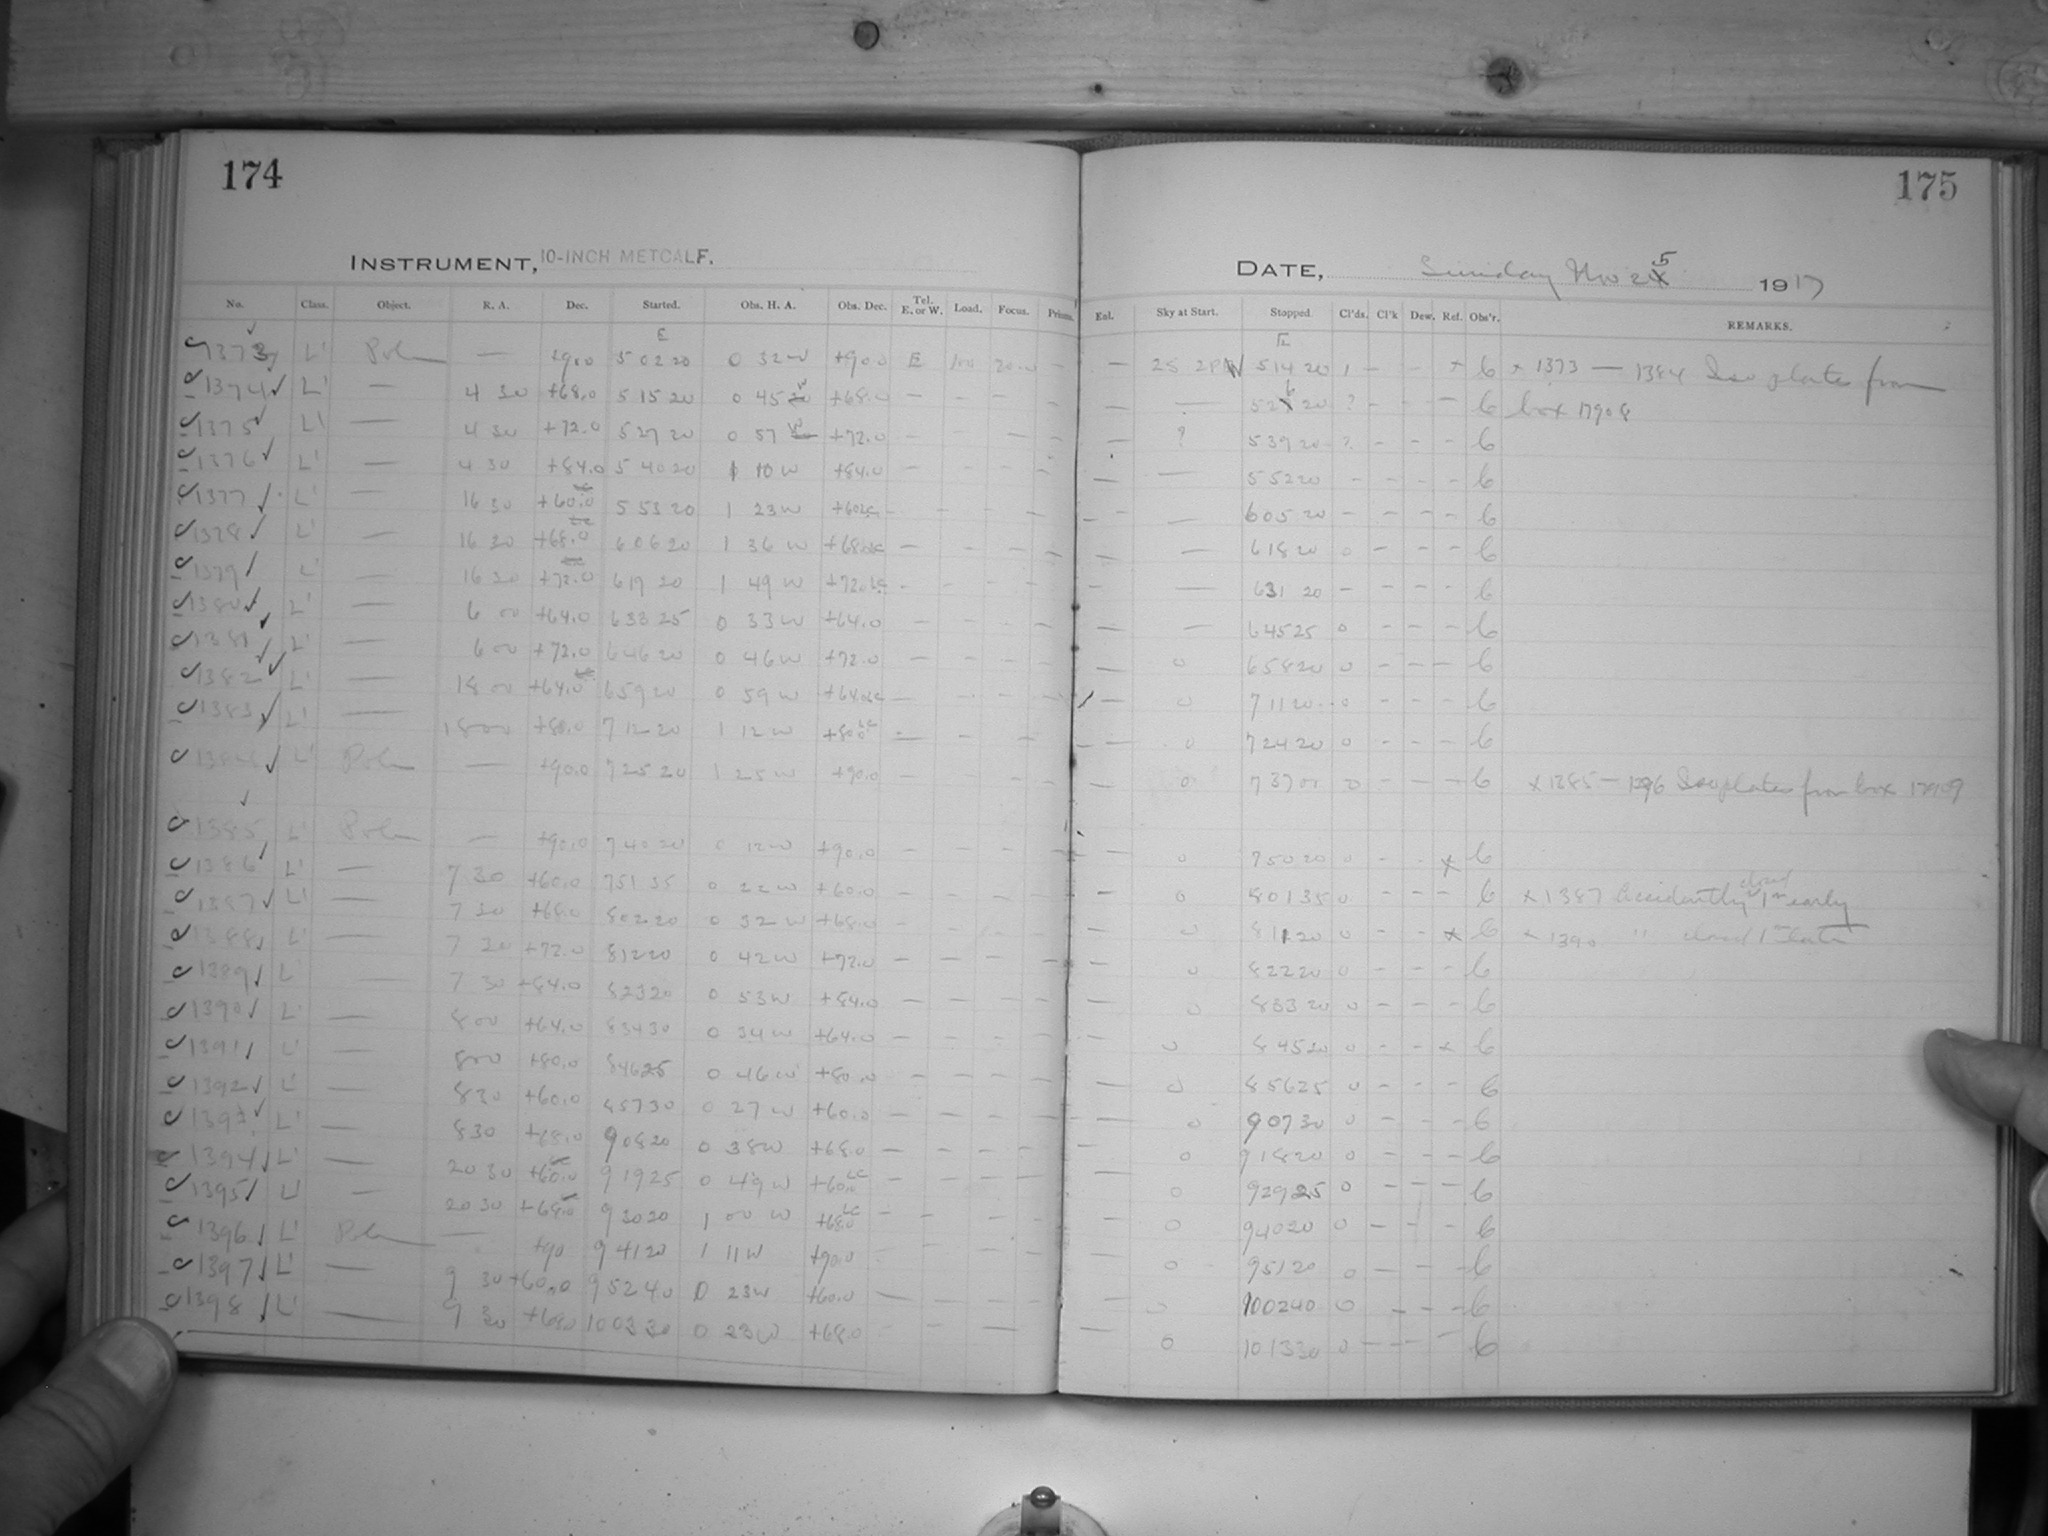 174
INSTRUMENT, 10-INCH METCALF.
No. Class. Object. R. A. Dec. Started. Obs. H. A. Obs. Dec. Tel. E. or W. Load. Focus. Prisms.
E
1373 L' Pole — +90.0 5 02 20 0 32 W +90.0 E 100 20.0 —
1374 L' — 4 30 +68.0 5 15 20 0 45 W +68.0 — — — —
1375 L' — 4 30 +72.0 5 27 20 0 57 W +72.0 — — — —
1376 L' — 4 30 +84.0 5 40 20 1 10 W +84.0 — — — —
1377 L' — 16 30 +60.0 5 53 20 1 23 W +60 LC — — — —
1378 L' — 16 30 +68.0 6 06 20 1 36 W +68.0 LC — — — —
1379 L' — 16 30 +72.0 6 19 20 1 49 W +72.0 LC — — — —
1380 L' — 6 00 +64.0 6 33 25 0 33 W +64.0 — — — —
1381 L' — 6 00 +72.0 6 46 20 0 46 W +72.0 — — — —
1382 L' — 18 00 +64.0 6 59 20 0 59 W +64.0 LC — — — —
1383 L' — 18 00 +80.0 7 12 20 1 12 W +80.0 LC — — — —
1384 L' Pole — +90.0 7 25 20 1 25 W +90.0 — — — —
1385 L' Pole — +90.0 7 40 20 0 12 W +90.0 — — — —
1386 L' — 7 30 +60.0 7 51 35 0 22 W +60.0 — — — —
1387 L' — 7 30 +68.0 8 02 20 0 32 W +68.0 — — — —
1388 L' — 7 30 +72.0 8 12 20 0 42 W +72.0 — — — —
1389 L' — 7 30 +84.0 8 23 20 0 53 W +84.0 — — — —
1390 L' — 8 00 +64.0 8 34 30 0 34 W +64.0 — — — —
1391 L' — 8 00 +80.0 8 46 25 0 46 W +80.0 — — — —
1392 L' — 8 30 +60.0 8 57 30 0 27 W +60.0 — — — —
1393 L' — 8 30 +68.0 9 08 20 0 38 W +68.0 — — — —
1394 L' — 20 30 +60.0 9 19 25 0 49 W +60.0 LC — — — —
1395 L' — 20 30 +68.0 9 30 20 1 00 W +68.0 LC — — — —
1396 L' Pole — +90 9 41 20 1 11 W +90.0 — — — —
1397 L' — 9 30 +60.0 9 52 40 0 23 W +60.0 — — — —
1398 L' — 9 30 +68.0 10 03 30 0 33 W +68.0 — — —
175
DATE, Sunday Nov 25 1917
Exl. Sky at Start. Stopped. Cl'ds. Cl'k Dew. Ref. Obs'r. REMARKS.
— 5 14 20 1 — — x 6 x 1373 — 1384 Iso plates from
— — 5 26 20 ? — — — 6 box 17908
— ? 5 39 20 ? — — — 6
— — 5 52 20 — — — — 6
— — 6 05 20 — — — — 6
— — 6 18 20 0 — — — 6
— — 6 31 20 — — — — 6
— — 6 45 25 0 — — — 6
— 0 6 58 20 0 — — — 6
— 0 7 11 20 0 — — — 6
— 0 7 24 20 0 — — — 6
— 0 7 37 00 0 — — — 6 x 1385 — 1396 Iso plates from box 17909
— 0 7 50 20 0 — — x 6
— 0 8 01 35 0 — — — 6 x 1387 Accidently closed 1m early
— 0 8 11 20 0 — — x 6 x 1390 " closed 1m late
— 0 8 22 20 0 — — — 6
— 0 8 33 20 0 — — — 6
— 0 8 45 20 0 — — x 6
— 0 8 56 25 0 — — — 6
— 0 9 07 30 0 — — — 6
— 0 9 18 20 0 — — — 6
— 0 9 29 25 0 — — — 6
— 0 9 40 20 0 — — — 6
— 0 9 51 20 0 — — — 6
— 0 10 02 40 0 — — — 6
— 0 10 13 30 0 — — — 6